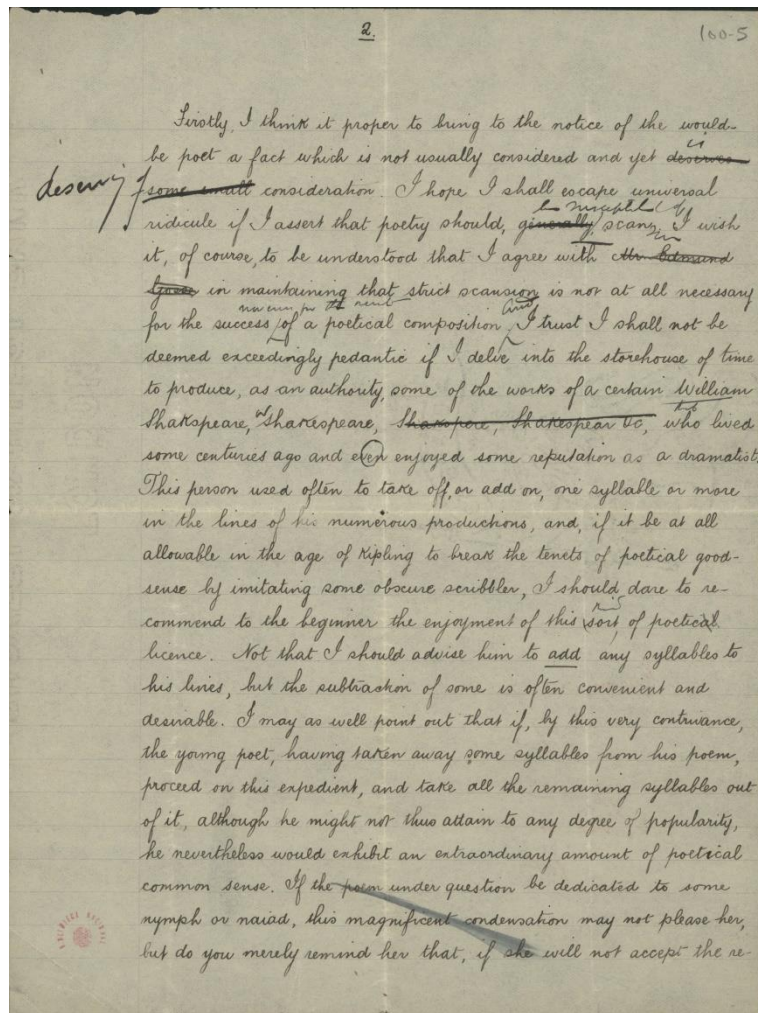 2.
100-5
Firstly, I think it proper to bring to the notice of the would-
be poet a fact which is not usually considered and yet deserves is
deserving of some small consideration. I hope I shall escape universal
ridicule if I assert that poetry should, generally, scan; I wish
it, of course, to be understood that I agree with Mr. Edmund
Gosse in maintaining that strict scansion is not at all necessary
for the success of a poetical composition. and I trust I shall not be
deemed exceedingly pedantic if I delve into the storehouse of time
to produce, as an authority, some of the works of a certain William
Shakspeare, or Shakespeare, Shakspere, Shakespear &c, who lived
some centuries ago and even enjoyed some reputation as a dramatist.
This person used often to take off, or add on, one syllable or more
in the lines of his numerous productions, and, if it be at all
allowable in the age of Kipling to break the tenets of poetical good-
sense by imitating some obscure scribbler, I should dare to re-
commend to the beginner the enjoyment of this sort of poetical
licence. Not that I should advise him to add any syllables to
his lines, but the subtraction of some is often convenient and
desirable. I may as well point out that if, by this very contrivance,
the young poet, having taken away some syllables from his poem,
proceed on this expedient, and take all the remaining syllables out
of it, although he might not thus attain to any degree of popularity,
he nevertheless would exhibit an extraordinary amount of poetical
common sense. If the poem under question be dedicated to some
nymph or naiad, this magnificent condensation may not please her,
but do you merely remind her that, if she will not accept the re-